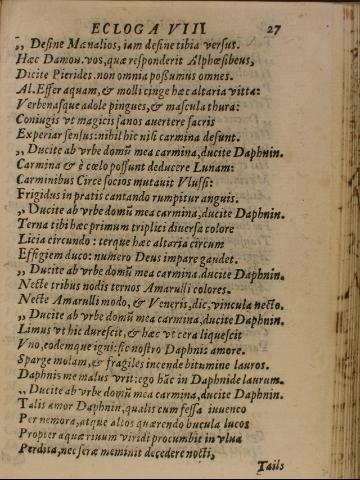 ECLOGA VIII 27
„ Desine Mænalios, iam desine tibia versus.
Hæc Damon. vos, quæ responderit Alphœsibeus,
Dicite Pierides. non omnia possumus omnes.
Al. Effer aquam, & molli cinge hæc altaria vitta:
Verbenasque adole pingues, & mascula thura:
Coniugis vt magicis sanos auertere sacris
Experiar sensus: nihil hic nisi carmina desunt.
„ Ducite ab vrbe domũ mea carmina, ducite Daphnin.
Carmina & è cœlo possunt deducere Lunam:
Carminibus Circe socios mutauit Vlussi:
Frigidus in pratis cantando rumpitur anguis.
„ Ducite ab vrbe domũ mea carmina, ducite Daphnin.
Terna tibi hæc primum triplici diuersa colore
Licia circundo: terque hæc altaria circum
Effigiem duco: numero Deus impare gaudet.
„ Ducite ab vrbe domũ mea carmina. ducite Daphnin.
Necte tribus nodis ternos Amarulli colores.
Necte Amarulli modo, & Veneris, dic, vincula necto.
„ Ducite ab vrbe domũ mea carmina, ducite Daphnin.
Limus vt hic durescit, & hæc vt cera liquescit
Vno, eodemque igni: sic nostro Daphnis amore.
Sparge molam, & fragiles incende bitumine lauros.
Daphnis me malus vrit: ego hãc in Daphnide laurum.
„ Ducite ab vrbe domũ mea carmina, ducite Daphnin.
Talis amor Daphnin, qualis cum fessa iuuenco
Per nemora, atque altos quærendo bucula lucos
Propter aquæ riuum viridi procumbit in vlua
Perdita, nec seræ meminit decedere nocti,
Tails